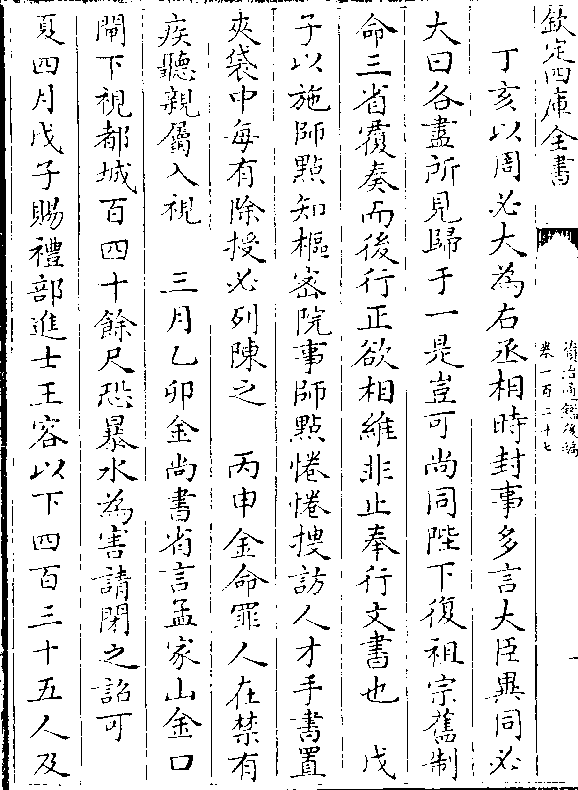 欽定四庫全書
資治通鑑後編
卷一百二十七
丁亥以周必大為右丞相時封事多言大臣異同必
大曰各盡所見歸于一是豈可尚同陛下復祖宗舊制
命三省覆奏而後行正欲相維非止奉行文書也　戊
子以施師點知樞密院事師點惓惓搜訪人才手書置
夾袋中每有除授必列陳之　丙申金命罪人在禁有
疾聽親屬入視　三月乙卯金尚書省言孟家山金口
閘下視都城百四十餘尺恐暴水為害請閉之詔可
夏四月戊子賜禮部進士王容以下四百三十五人及